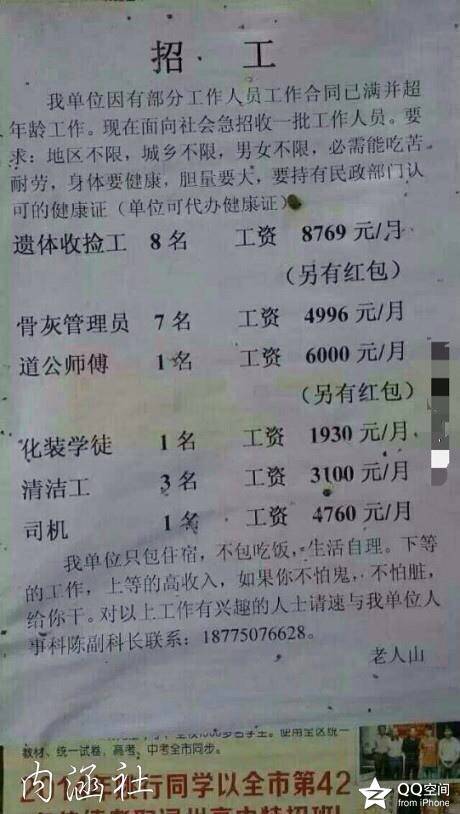 招 工
我单位因有部分工作人员工作合同已满并超
年龄工作。现在面向社会急招收一批工作人员。要
求：地区不限，城乡不限，男女不限，必需能吃苦
耐劳，身体要健康，胆量要大，要持有民政部门认
可的健康证（单位可代办健康证）
遗体收捡工 8名 工资 8769 元/月
（另有红包）
骨灰管理员 7名 工资 4996 元/月
道公师傅 1名 工资 6000 元/月
（另有红包）
化装学徒 1名 工资 1930 元/月
清洁工 3名 工资 3100 元/月
司机 1名 工资 4760 元/月
我单位只包住宿，不包吃饭，生活自理。下等
的工作，上等的高收入，如果你不怕鬼，不怕脏，
给你干。对以上工作有兴趣的人士请速与我单位人
事科陈副科长联系：18775076628。
老人山
教材、统一试卷，高考、中考全市同步。
行同学以全市第42
内涵社
QQ空间
from iPhone